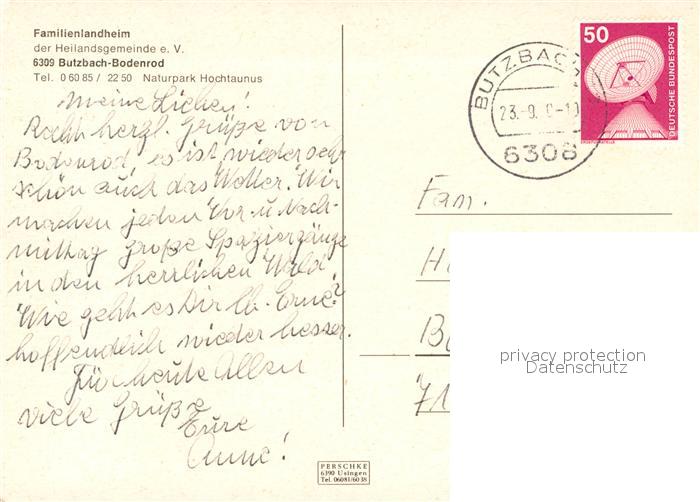 Familienlandheim
der Heilandsgemeinde e. V.
6309 Butzbach-Bodenrod
Tel. 0 60 85 / 22 50 Naturpark Hochtaunus
Meine Lieben!
Recht herzl. Grüße von
Bodenrod, es ist wieder sehr
schön auch das Wetter. Wir
machen jeden Vor- u. Nach-
mittag große Spaziergänge
in den herrlichen Wald.
Wie geht es Dir lb. Erne?
hoffendlich wieder besser.
Für heute Allen
viele Grüße
Eure
Anne!
BUTZBACH
23.-9.
6308
50
DEUTSCHE BUNDESPOST
Fam.
H
B
71
privacy protection
Datenschutz
PERSCHKE
6390 Usingen
Tel. 06081/6038